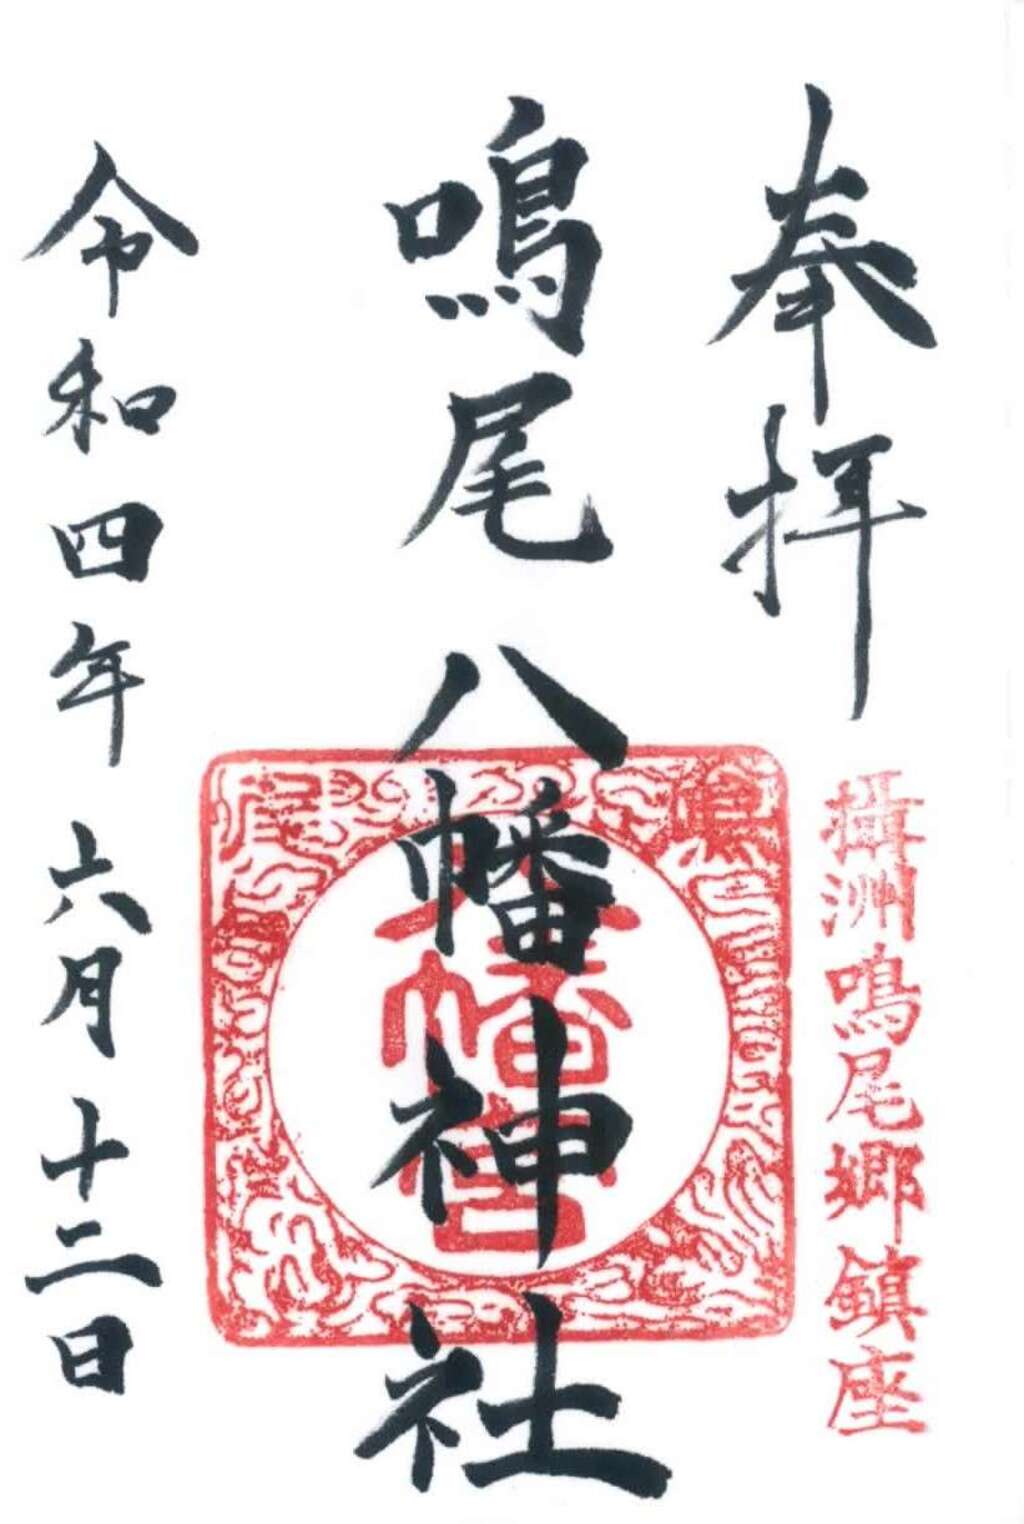 奉拝
攝洲鳴尾郷鎮座
鳴尾八幡神社
八幡宮
令和四年六月十二日